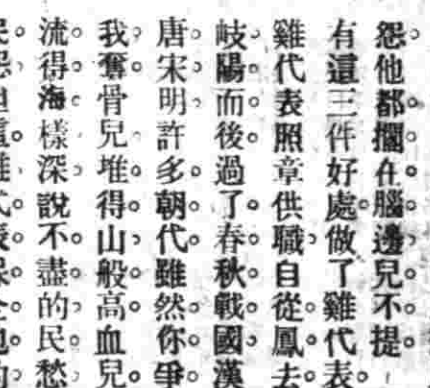 怨他都擱在腦邊兒不提
有這三件好處做了雞代表
雞代表照章供職自從鳳去
岐陽而後過了春秋戰國漢
唐宋明許多朝代雖然你爭
我奪骨兒堆得山般高血兒
流得海樣深說不盡的民愁